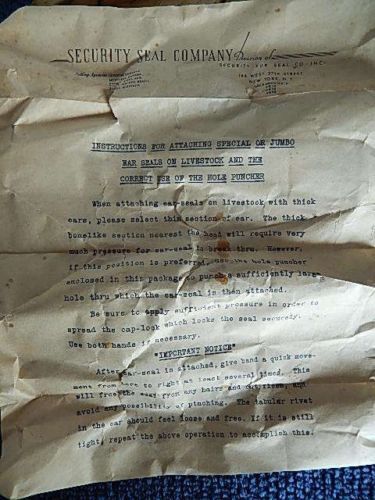 SECURITY SEAL COMPANY Division of
SECURITY FUR SEAL CO. INC.
WEST 27TH STREET
NEW YORK, N.Y.
INSTRUCTIONS FOR ATTACHING SPECIAL OR JUMBO
EAR SEALS ON LIVESTOCK AND THE
CORRECT USE OF THE HOLE PUNCHER
When attaching ear-seals on livestock with thick
ears, please select thin section of ear. The thick
bonelike section nearest the head will require very
much pressure for ear-seal to break thru. However,
if this position is preferred, use the hole puncher
enclosed in this package to punch sufficiently large
hole thru which the ear-seal is then attached.
Be sure to apply sufficient pressure in order to
spread the cap-lock which locks the seal securely.
Use both hands if necessary.
"IMPORTANT NOTICE"
After ear-seal is attached, give band a quick move-
ment from left to right at least several times. This
will free the from any hairs and and
avoid any possibility of pinching. The tubular rivet
in the ear should feel loose and free. If it is still
tight, repeat the above operation to accomplish this.